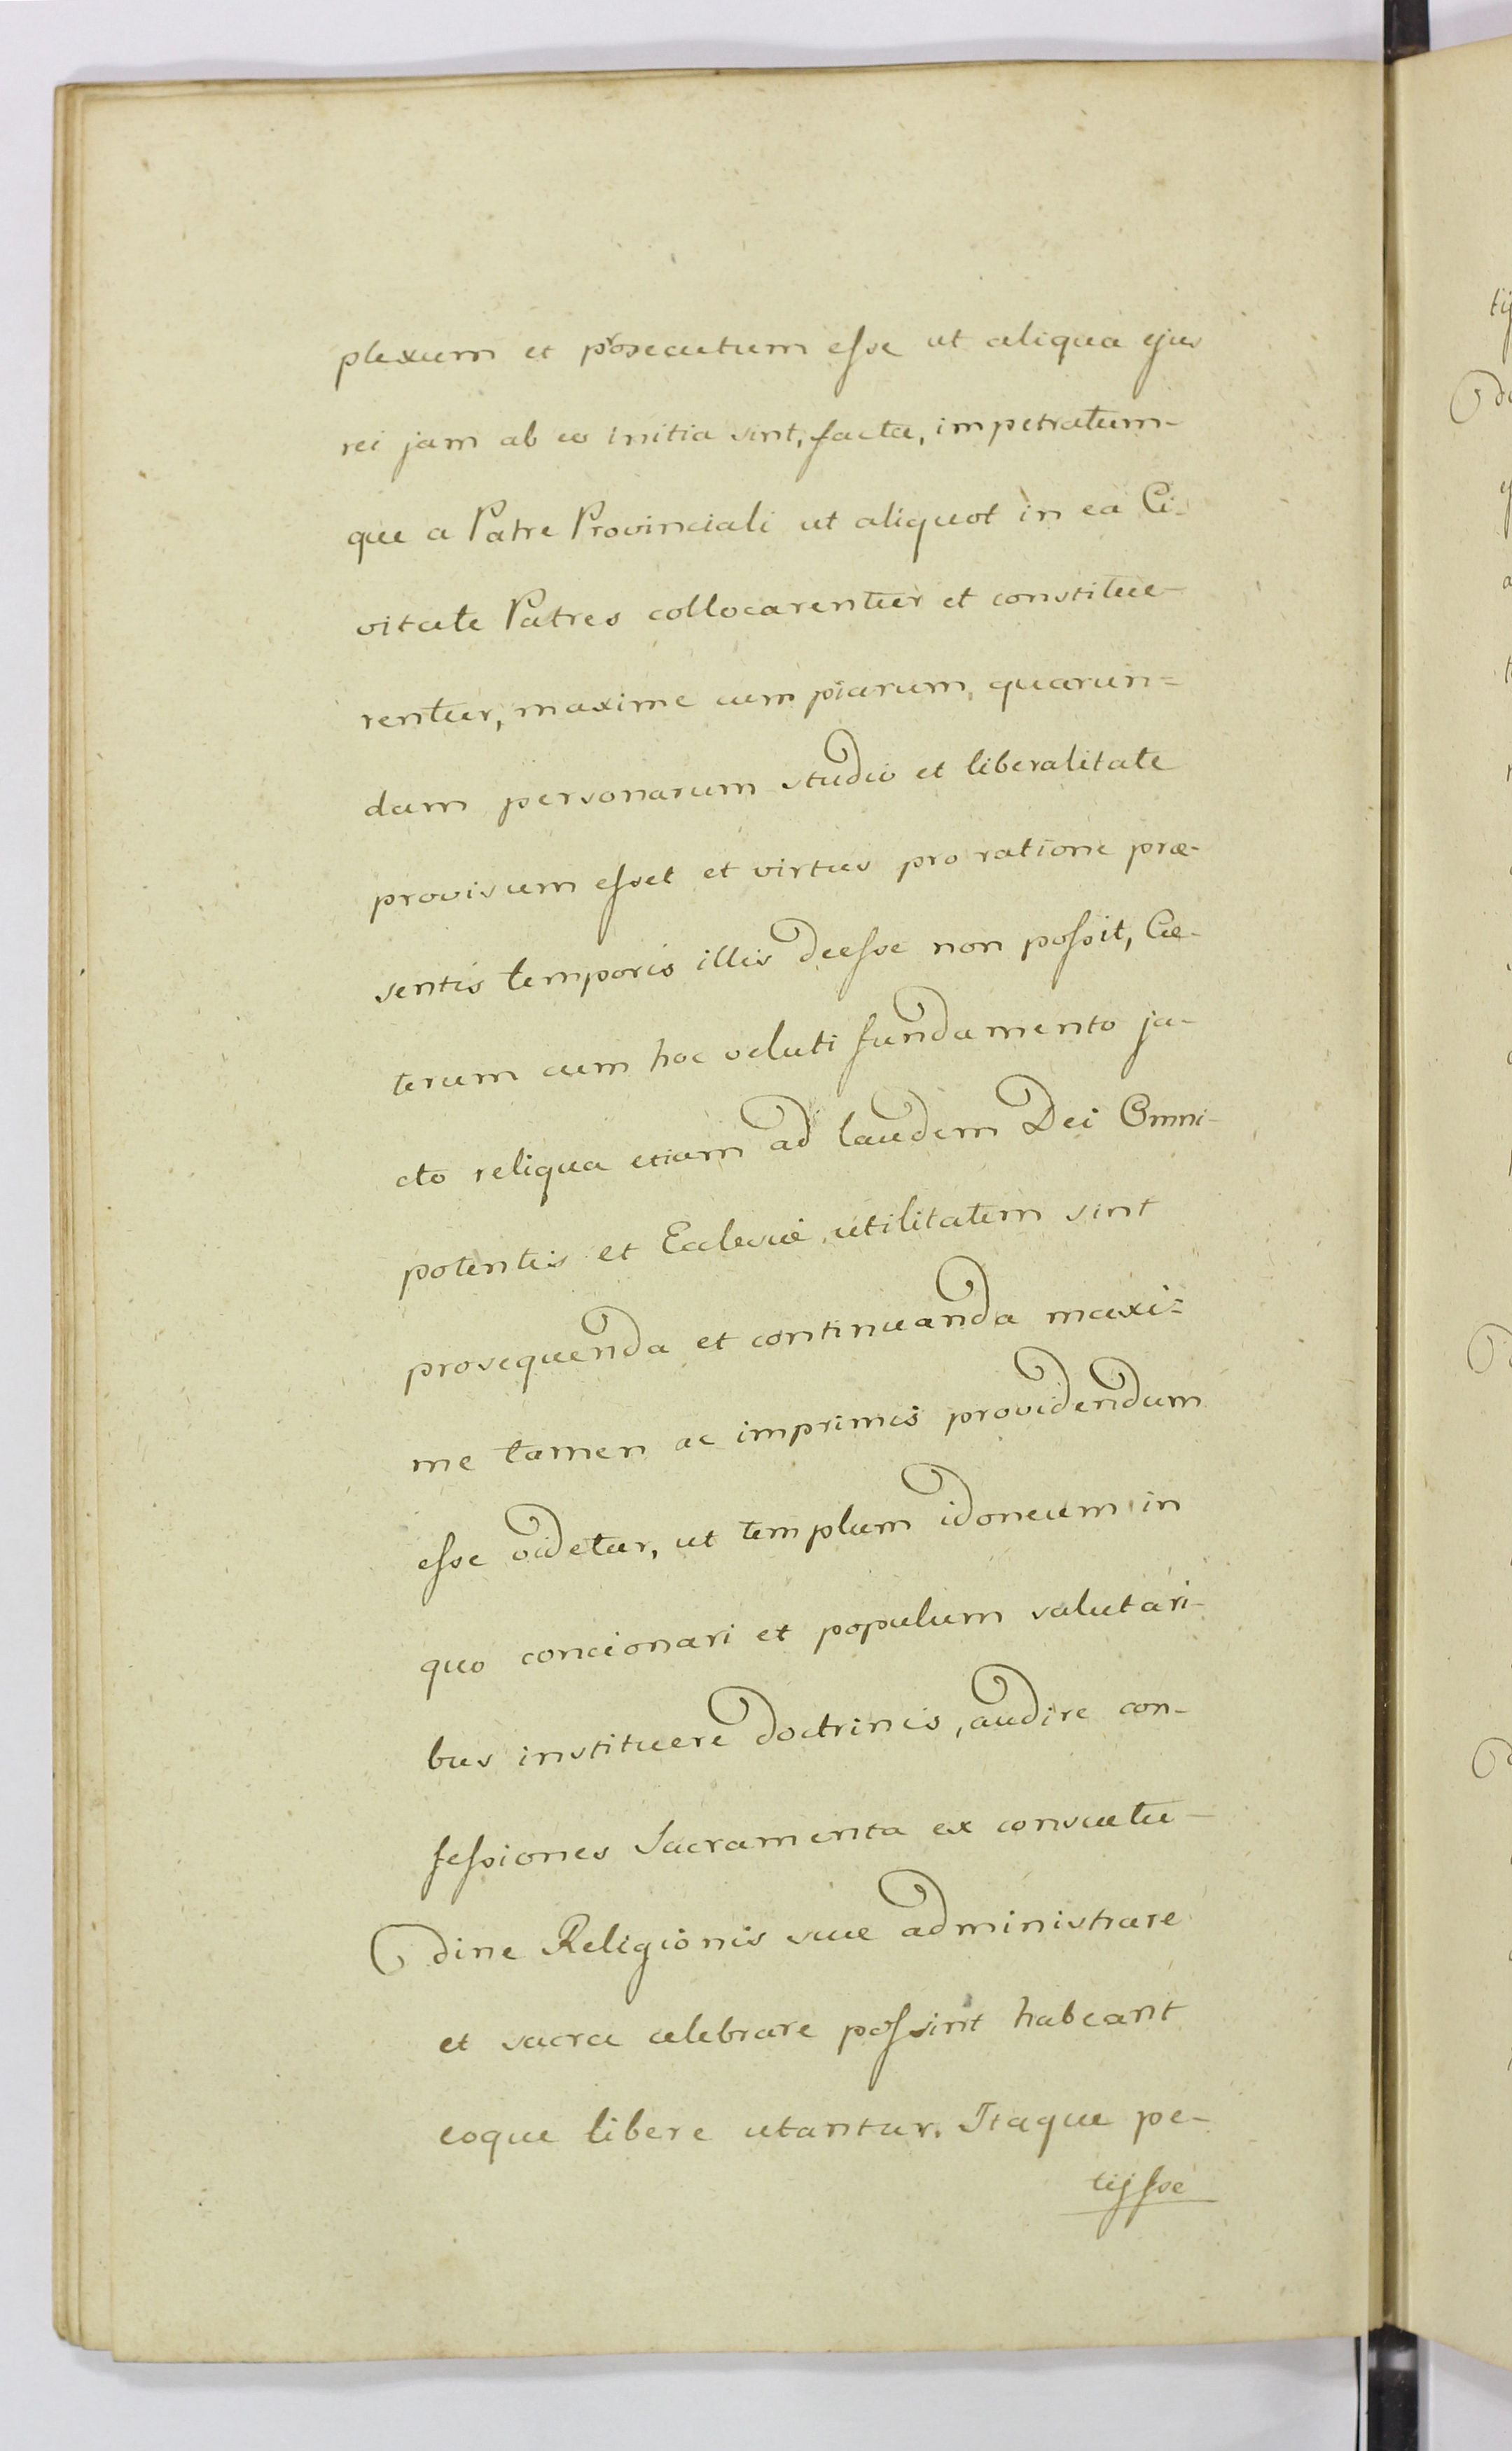 plexum et prosecutum esse ut aliqua ejus
rei jam ab eo initia sint, facta, impetratum-
que a Patre Provinciali ut aliquot in ea Ci-
vitate Patres collocarentur et constitue-
rentur, maxime cum piarum, quarun=
dam personarum studio et liberalitate
provisum esset et virtus pro ratione præ-
sentis temporis illis deesse non possit, Cæ-
terum cum hoc veluti fundamento ja-
cto reliqua etiam ad laudem Dei Omni-
potentis et Ecclesiæ utilitatem sint
prosequenda et continuanda maxi=
me tamen ac imprimis providendum
esse videtur, ut templum idoneum in
quo concionari et populum salutari-
bus instituere doctrinis, audire con-
fessiones Sacramenta ex consuetu-
dine Religionis suæ administrare
et sacra celebrare possint habeant
eoque libere utantur. Itaque pe-
tijsse